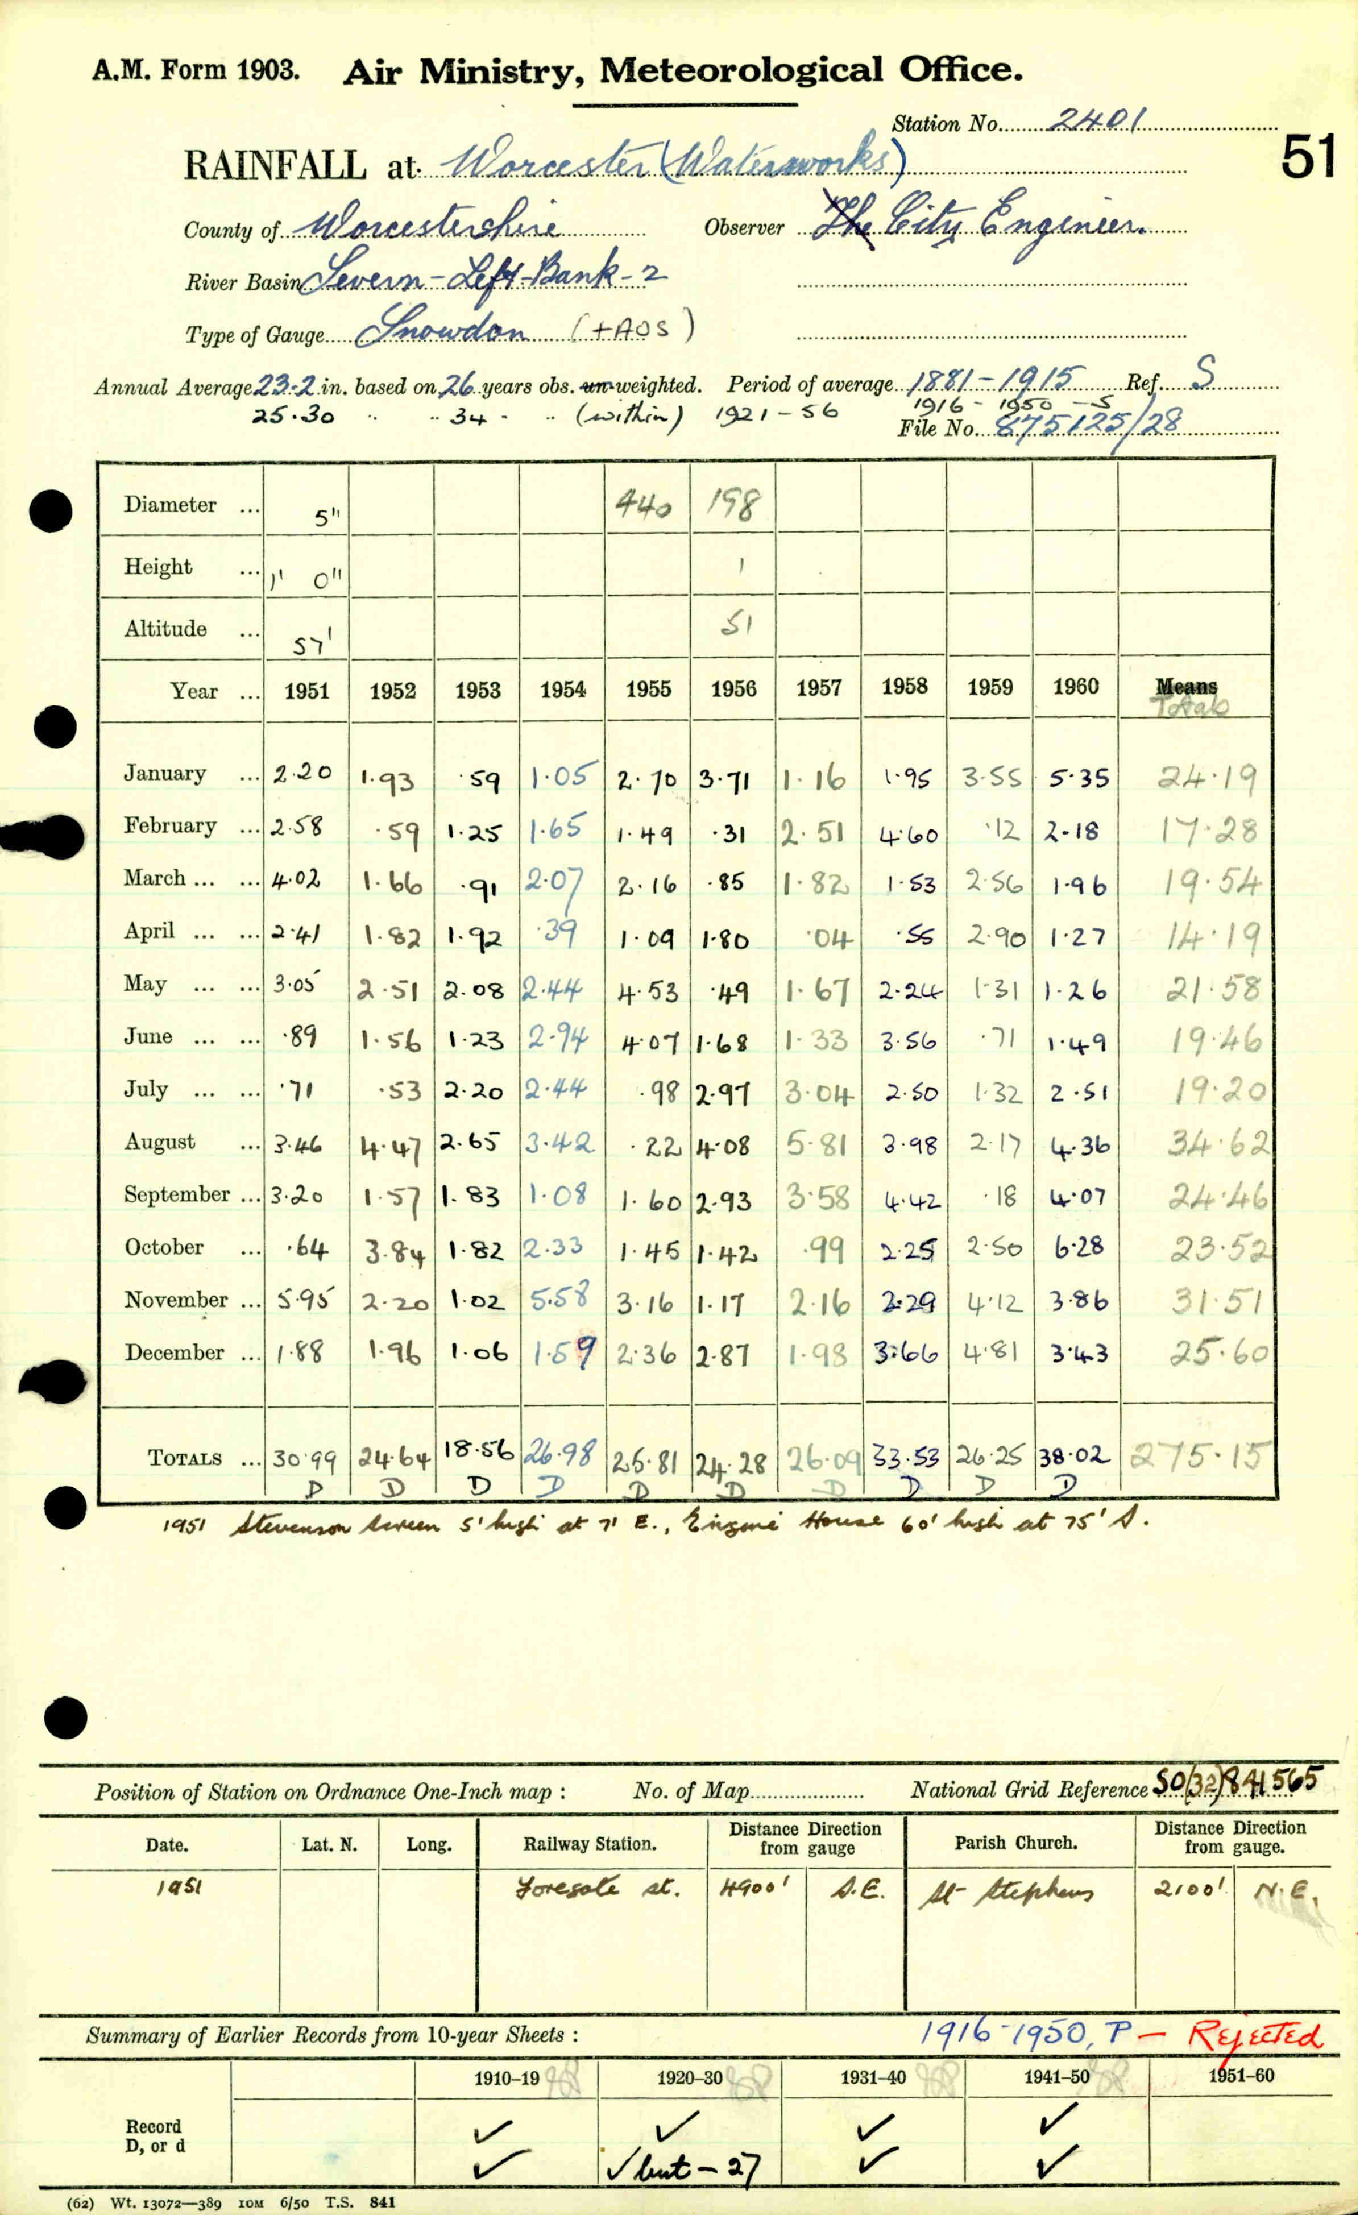 A.M. Form 1903. Air Ministry, Meteorological Office.
Station No. 2401
51
RAINFALL at Worcester (Waterworks)
County of Worcestershire Observer The City Engineer.
River Basin Severn - Left-Bank-2
Type of Gauge Snowdon (+AOS)
Annual Average 23.2 in. based on 26 years obs. un-weighted. Period of average 1881-1915 Ref. S
25.30 " " 34 " " (within) 1921-56 1916 - 1950 - S
File No. 875125/28
Diameter ... 5" 440 198
Height ... 1' 0" 1
Altitude ... 57' 51
Year ... 1951 1952 1953 1954 1955 1956 1957 1958 1959 1960 Means
Totals
January ... 2.20 1.93 .59 1.05 2.70 3.71 1.16 1.95 3.55 5.35 24.19
February ... 2.58 .59 1.25 1.65 1.49 .31 2.51 4.60 .12 2.18 17.28
March ... ... 4.02 1.66 .91 2.07 2.16 .85 1.82 1.53 2.56 1.96 19.54
April ... ... 2.41 1.82 1.92 .39 1.09 1.80 .04 .55 2.90 1.27 14.19
May ... ... 3.05 2.51 2.08 2.44 4.53 .49 1.67 2.24 1.31 1.26 21.58
June ... ... .89 1.56 1.23 2.94 4.07 1.68 1.33 3.56 .71 1.49 19.46
July ... ... .71 .53 2.20 2.44 .98 2.97 3.04 2.50 1.32 2.51 19.20
August ... 3.46 4.47 2.65 3.42 .22 4.08 5.81 3.98 2.17 4.36 34.62
September ... 3.20 1.57 1.83 1.08 1.60 2.93 3.58 4.42 .18 4.07 24.46
October ... .64 3.84 1.82 2.33 1.45 1.42 .99 2.25 2.50 6.28 23.52
November ... 5.95 2.20 1.02 5.58 3.16 1.17 2.16 2.29 4.12 3.86 31.51
December ... 1.88 1.96 1.06 1.59 2.36 2.87 1.98 3.66 4.81 3.43 25.60
TOTALS ... 30.99 24.64 18.56 26.98 25.81 24.28 26.09 33.53 26.25 38.02 275.15
D D D D D D D D D D
1951 Stevenson screen 5' high at 7' E., Engine House 60' high at 75' S.
Position of Station on Ordnance One-Inch map : No. of Map National Grid Reference SO(32)841565
Date. Lat. N. Long. Railway Station. Distance Direction from gauge Parish Church. Distance Direction from gauge.
1951 Foregate st. 4900' S.E. St Stephens 2100' N.E.
Summary of Earlier Records from 10-year Sheets : 1916-1950, P - Rejected
1910-19 1920-30 1931-40 1941-50 1951-60
Record ✓ ✓ ✓ ✓
D, or d ✓ ✓ but - 27 ✓ ✓
(62) Wt. 13072—389 10M 6/50 T.S. 841